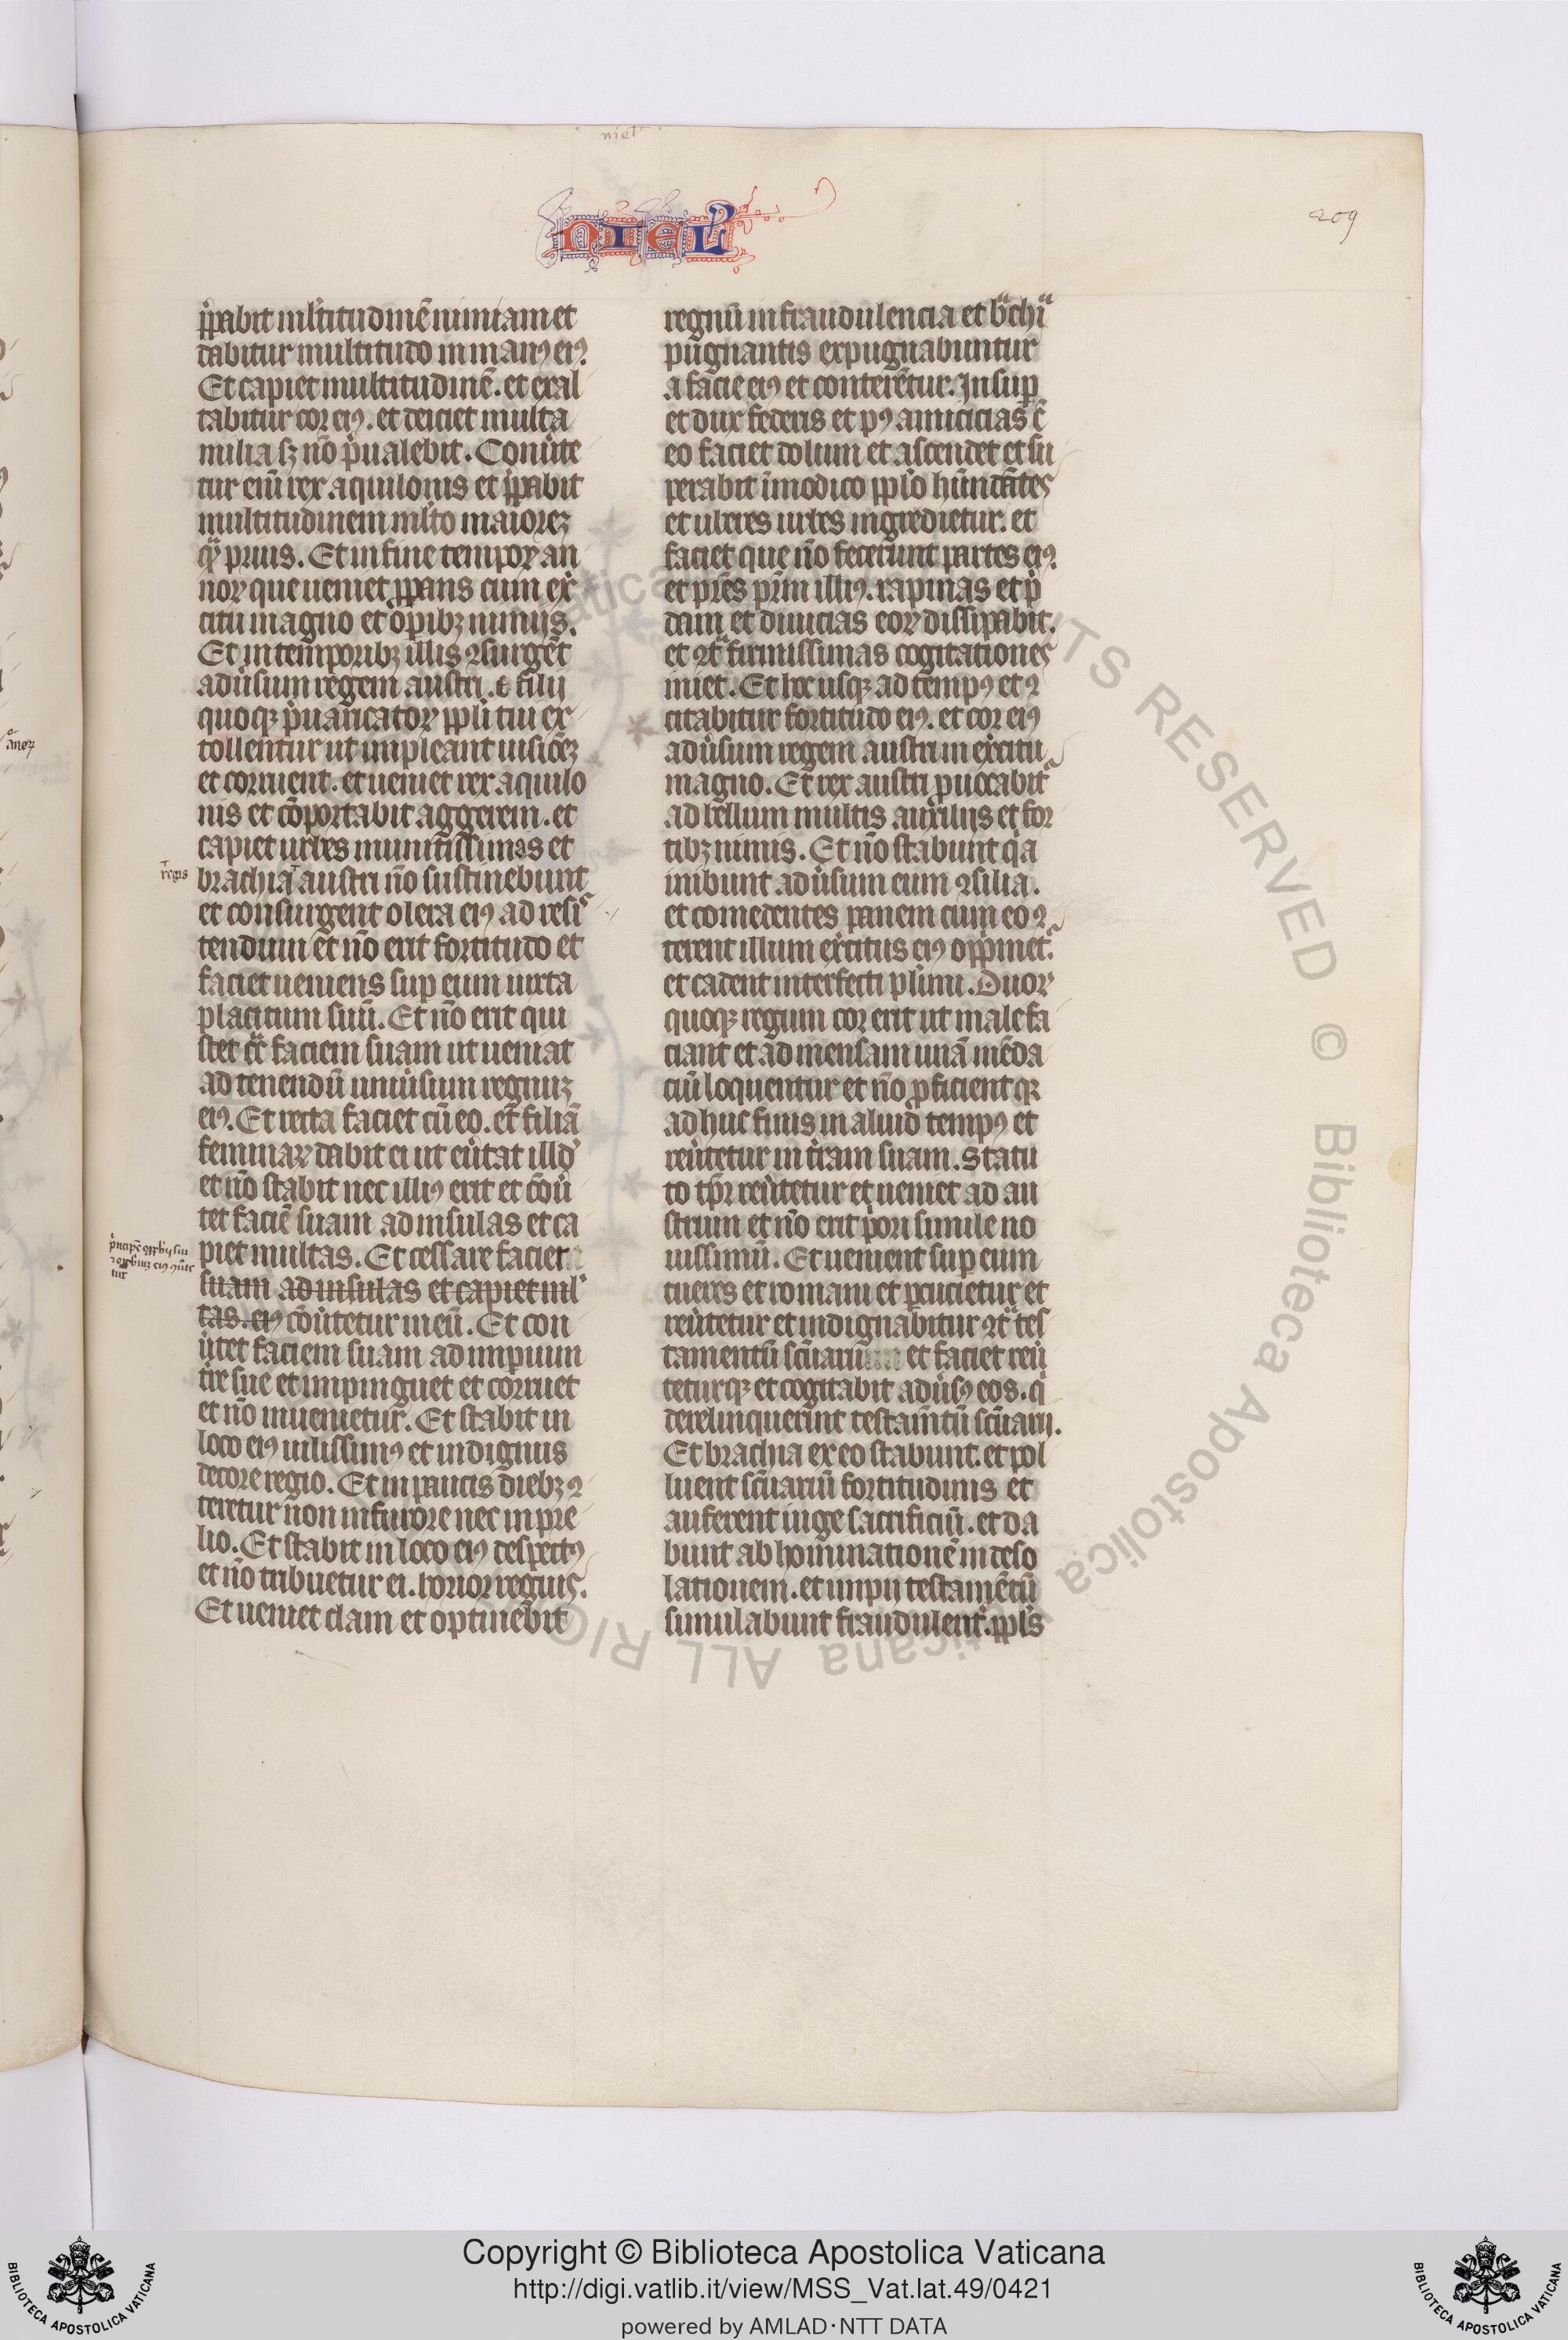 niel
NIEL
209
p̉pabit ml̉titudinē nimiam et
dabitur multitudo in manꝰ eiꝰ.
Et capiet multitudinē. et exal
tabitur cor eiꝰ. et deiciet multa
milia sꝫ nō p̉ualebit. Conu̾te
tur eni̅ rex aquilonis et p̉pabit
multitudinem ml̉to maioreꝫ
qᷓ prius. Et in fine tempoꝝ an
noꝝ que ueniet ꝓpans cum ex̾
citu magno et opibꝫ nimijs.
Et in temporibꝫ illis ꝯsurgēt
adu̾sum regem austri. ⁊ filij
quoqꝫ p̉uaricatoꝝ ppl̉i tui ex
tollentur ut impleant uisio̅eꝫ
et corruent. et ueniet rex aquilo
nis et cōportabit aggerem. et
capiet urbes munitissimas et
regis
brachia austri nō sustinebunt
et consurgent olera eiꝰ ad resis
tendum et nō erit fortitudo et
faciet ueniens sup eum iuxta
placitum suū. Et nō erit qui
stet cᷓ faciem suam ut ueniat
ad tenendū uniu̾sum regnuꝫ
eiꝰ. Et recta faciet cū eo. et filiā
feminaꝝ dabit ei ut eu̾tat illd̉
et nō stabit nec illiꝰ erit et cōu̾
tet faciē suam ad insulas et ca
piet multas. Et cessare faciet
suam ad insulas et capiet ml̉
tas. eiꝰ cōu̾tetur in eū. Et con
u̾tet faciem suam ad imperium
tr̾e sue et impinguet et corruet
et nō inuenietur. Et stabit in
loco eiꝰ uilissimꝰ et indignus
decore regio. Et in paucis diebꝫ ꝯ
teretur non in furore nec in pre
lio. Et stabit in loco eiꝰ despectꝰ
et nō tribuetur ei. honor regius.
Et ueniet clam et optinebit
regnū in fraudulencia et bᷓchiᷓ
pugnantis expugnabuntur
a facie eiꝰ et conterētur. Insup
et dux federis et pꝰ amicicias c̄
eo faciet dolum et ascendet et su
perabit īmodico ppl̉o habūdātes
et uberes urbes ingredietur. et
faciet que nō fecerunt partes eiꝰ.
et pr̄es pr̄m illiꝰ. rapinas et p̉
dam et diuicias eoꝝ dissipabit.
et ꝯtᷓ firmissimas cogitationes
iniet. Et hoc usqꝫ ad tempꝰ et ꝯ
citabitur fortitudo eiꝰ. et cor eiꝰ
adu̾sum regem austri in ex̾citu
magno. Et rex austri ꝓuocabit᷑
ad bellum multis auxilijs et for
tibꝫ nimis. Et nō stabunt q̉a
inibunt adu̾sum eum ꝯsilia.
et comedentes panem cum eo ꝯ
terent illum ex̾citus eiꝰ opp̉met᷑.
et cadent interfecti pl̉imi. Duoꝝ
quoqꝫ regum cor erit ut malefa
ciant et ad mensam unā mēda
ciū loquentur et nō ꝓficient qꝫ
adhuc finis in aliud tempꝰ et
reu̾tetur in tr̾am suam. Statu
to tp̄r reu̾tetur et ueniet ad au
strum et nō erit p̉ori simile no
uissimū. Et uenient sup eum
trieres et romani et ꝑcucietur et
reu̾tetur et indignabitur ꝯtᷓ tes
tamentū sc̄uariū et faciet reu̾
teturqꝫ et cogitabit adu̾sꝰ eos. q̉
derelinquerint testam̄tū sc̄uarij.
Et brachia ex eo stabunt. et pol
luent sc̄uariū fortitudinis et
auferent iuge sacrificiū. et da
bunt abhominationē in deso
lationem. et impij testamētū
simulabunt fraudulent̾. ppl̉s
Copyright © Biblioteca Apostolica Vaticana
http://digi.vatlib.it/view/MSS_Vat.lat.49/0421
powered by AMLAD·NTT DATA
BIBLIOTECA APOSTOLICA VATICANA
BIBLIOTECA APOSTOLICA VATICANA